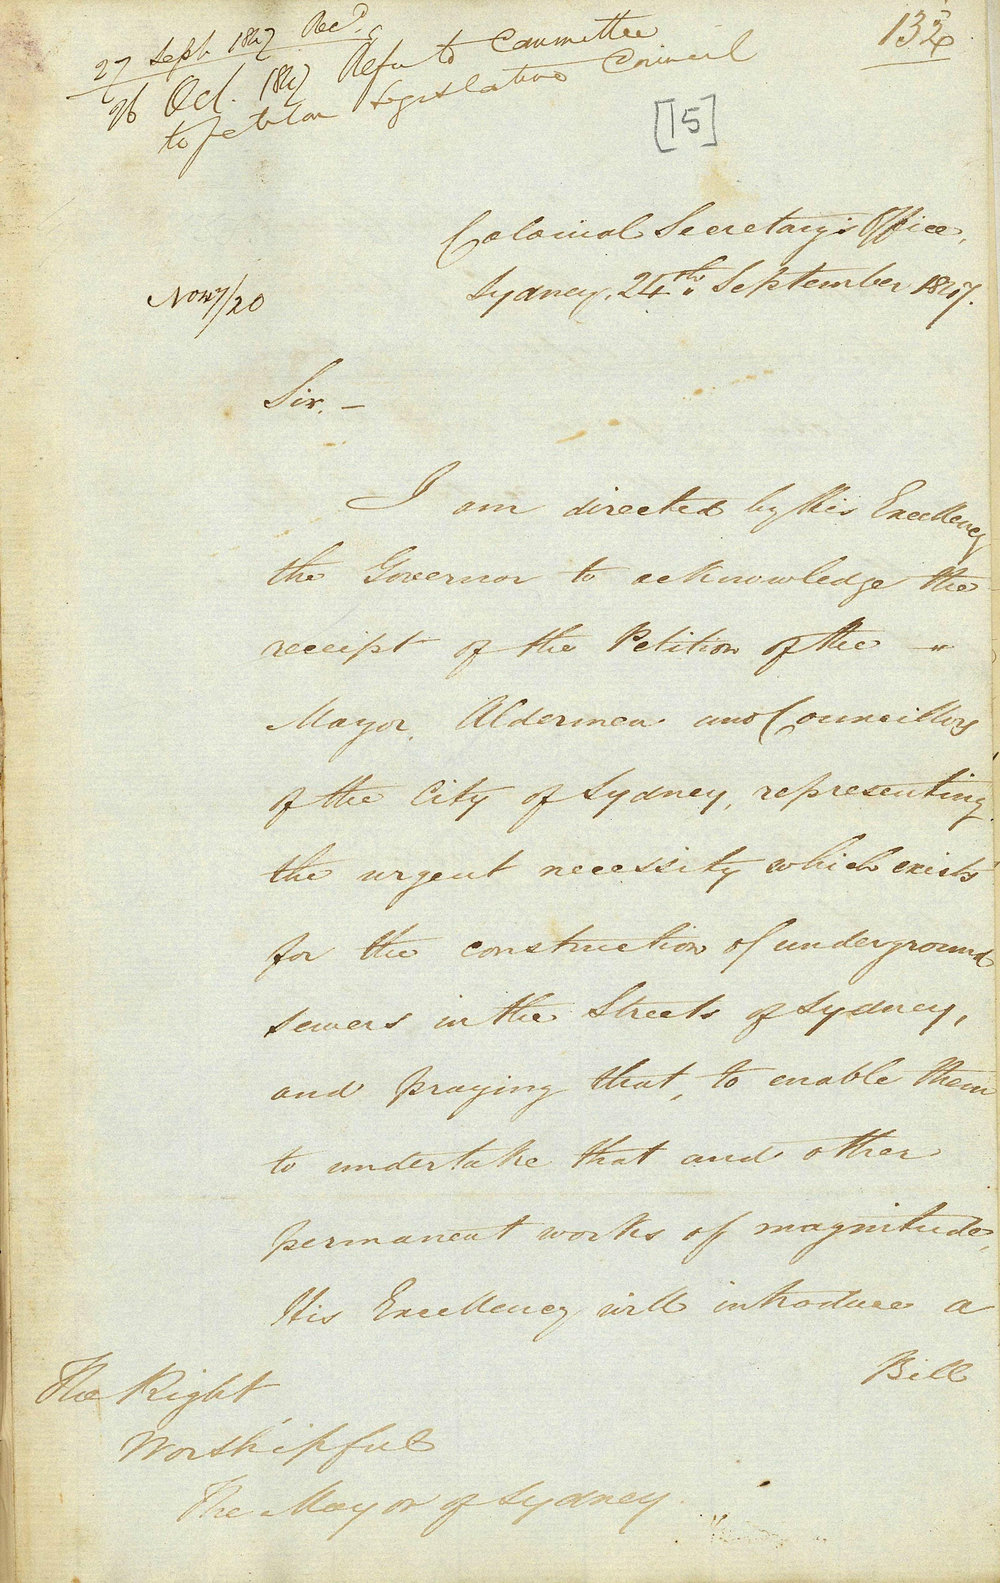 27 Sept 1847 Recd.
26 Oct. 1847 Refer to Committee
to petition Legislative Council
132
[15]
Colonial Secretary's Office,
Sydney, 24th September 1847.
No 47/20
Sir. —
I am directed by His Excellency
the Governor to acknowledge the
receipt of the Petition of the
Mayor, Aldermen and Councillors
of the City of Sydney, representing
the urgent necessity which exists
for the construction of underground
sewers in the Streets of Sydney,
and praying that, to enable them
to undertake that and other
permanent works of magnitude,
His Excellency will introduce a
Bill
The Right
Worshipful
The Mayor of Sydney